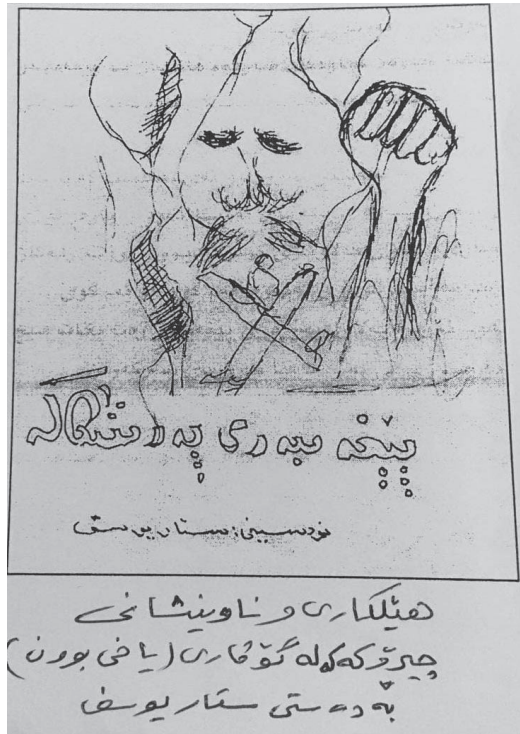 پێغەمبەری پەرستگا لە
نووسینی: ستار یوسف
هێلکاری و ناونیشانی
چیرۆکەکە لە گۆڤاری (یاخی بوون)
بە دەستی ستار یوسف